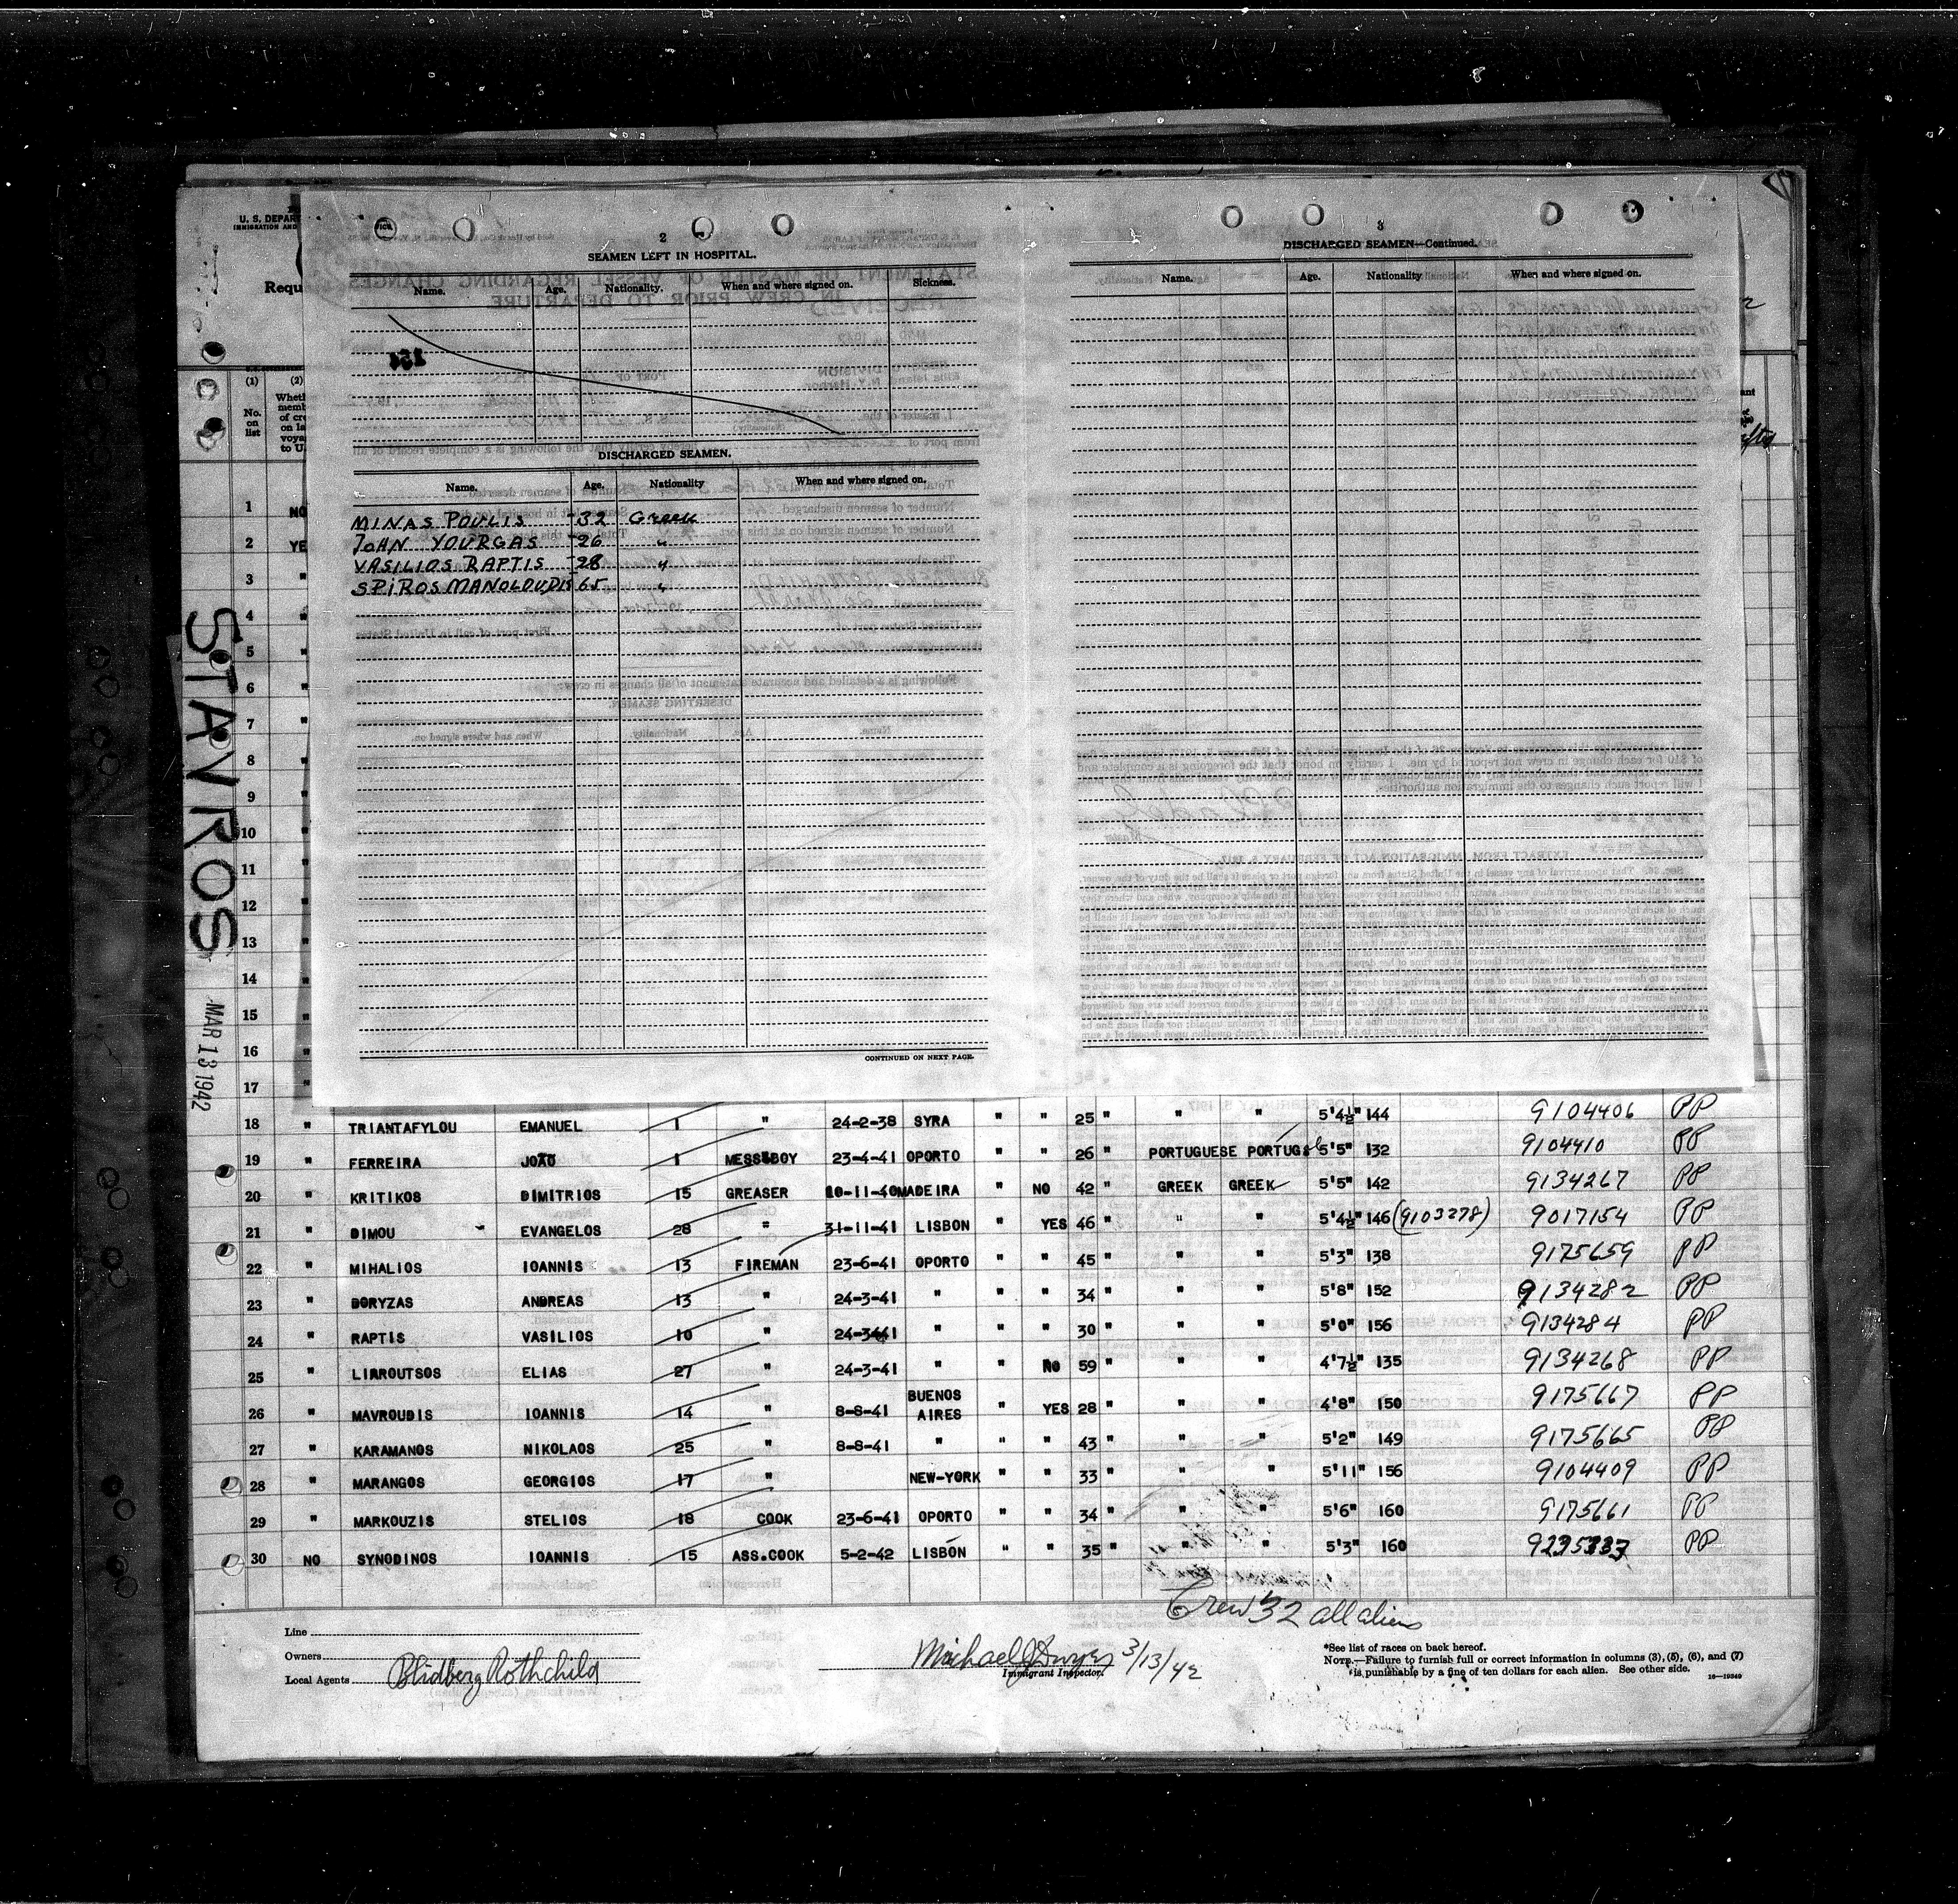 U. S. DEPAR
IMMIGRATION AND
Requ
2
SEAMEN LEFT IN HOSPITAL.
Name. Age. Nationality. When and where signed on. Sickness.
DISCHARGED SEAMEN.
Name. Age. Nationality When and where signed on.
MINAS POULIS 32 Greek
JOHN YOURGAS 26 "
VASILIOS RAPTIS 28 "
SPIROS MANOLOUDIS 65 "
CONTINUED ON NEXT PAGE.
3
DISCHARGED SEAMEN—Continued.
Name. Age. Nationality When and where signed on.
STAVROS
MAR 13 1942
(1) (2)
No. on list
Whet
memb
of cre
on la
voya
to U.
1 NO
2 YE
3 "
4 "
5 "
6 "
7 "
8 "
9 "
10 "
11 "
12 "
13 "
14 "
15 "
16 "
17 "
18 " TRIANTAFYLOU EMANUEL 1 " 24-2-38 SYRA " " 25 " " " 5'4½" 144 9104406 PP
19 " FERREIRA JOÃO 1 MESSBOY 23-4-41 OPORTO " " 26 " PORTUGUESE PORTUGal 5'5" 132 9104410 PP
20 " KRITIKOS DIMITRIOS 15 GREASER 10-11-40 MADEIRA " NO 42 " GREEK GREEK 5'5" 142 9134267 PP
21 " DIMOU EVANGELOS 28 " 31-11-41 LISBON " YES 46 " " " 5'4½" 146 (9103278) 9017154 PP
22 " MIHALIOS IOANNIS 13 FIREMAN 23-6-41 OPORTO " " 45 " " " 5'3" 138 9175659 PP
23 " DORYZAS ANDREAS 13 " 24-3-41 " " " 34 " " " 5'8" 152 9134282 PP
24 " RAPTIS VASILIOS 10 " 24-3-41 " " " 30 " " " 5'0" 156 9134284 PP
25 " LIAROUTSOS ELIAS 27 " 24-3-41 " " NO 59 " " " 4'7½" 135 9134268 PP
26 " MAVROUDIS IOANNIS 14 " 8-8-41 BUENOS AIRES " YES 28 " " " 4'8" 150 9175667 PP
27 " KARAMANOS NIKOLAOS 25 " 8-8-41 " " " 43 " " " 5'2" 149 9175665 PP
28 " MARANGOS GEORGIOS 17 " NEW-YORK " " 33 " " " 5'11" 156 9104409 PP
29 " MARKOUZIS STELIOS 18 COOK 23-6-41 OPORTO " " 34 " " " 5'6" 160 9175661 PP
30 NO SYNODINOS IOANNIS 15 ASS.COOK 5-2-42 LISBON " " 35 " " " 5'3" 160 PP
Crew 32 all aliens
Line
Owners
Local Agents Blidberg Rothchild
Michael J Dwyer 3/13/42
Immigrant Inspector.
*See list of races on back hereof.
NOTE.—Failure to furnish full or correct information in columns (3), (5), (6), and (7)
is punishable by a fine of ten dollars for each alien. See other side. 16—19349